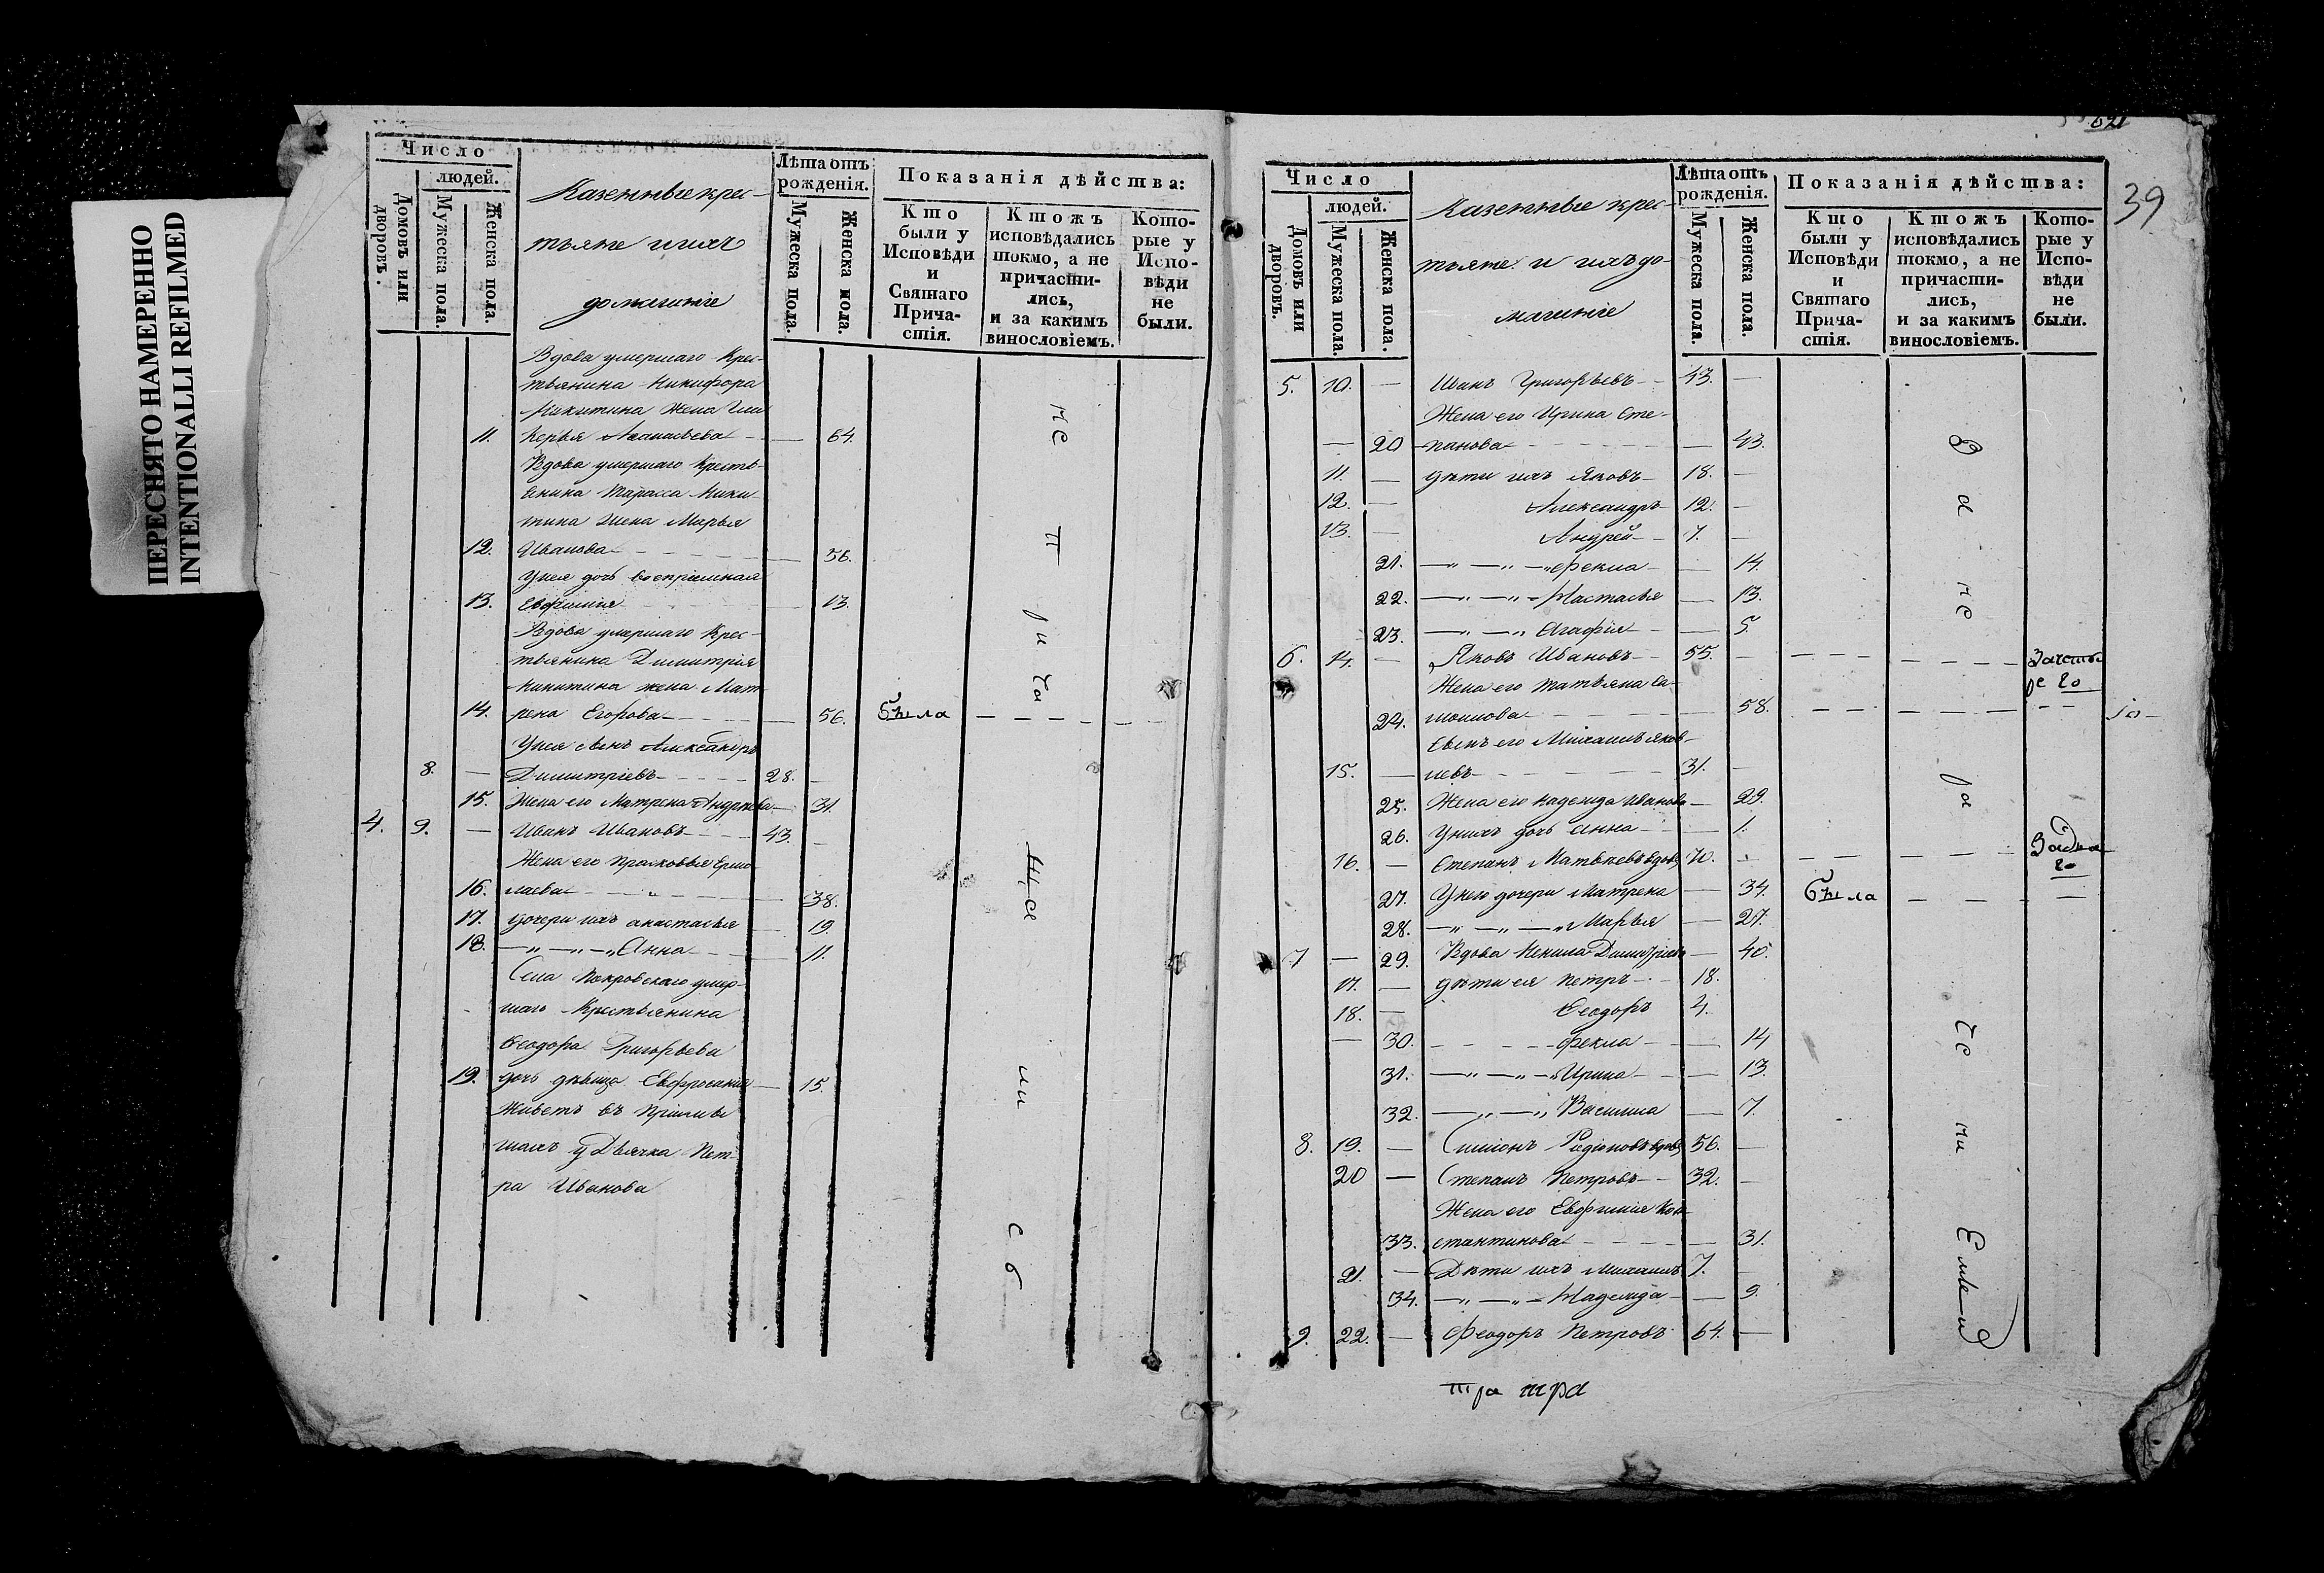 ПЕРЕСНЯТО НАМЕРЕННО
INTENTIONALLI REFILMED
Число
людей.
Домовъ или дворовъ.
Мужеска пола.
Женска пола.
Казенные крес-
тьяне и ихъ
домашніе
Лѣта отъ рожденія.
Мужеска пола.
Женска пола.
Показанія дѣйства:
Кто были у Исповѣди и Святаго Прича-стія.
Ктожъ исповѣдались токмо, а не причасти-лись, и за какимъ винословіемъ.
Кото-рые у Испо-вѣди не были.
Вдова умершаго Крес-
тьянина Никифора
Никитина Жена Гли
11. керья Аѳанасьева — 64.
Вдова умершаго Кресть-
янина Тарасса Ники-
тина Жена Марья
12. Иванова — 56.
Унея дочь воспріемная
13. Евфимія — 13.
Вдова умершаго Крес-
тьянина Димитрія
Никитина жена Мат-
14. рена Егорова — 56. была
Унея сынъ Александръ
8. — Димитріевъ 28. —
15. Жена его Матрена Андреева — 31.
4. 9. — Иванъ Ивановъ 43. —
Жена его Прасковья Ермо
16. лаева — 38.
17. дочери ихъ Анастасья — 19.
18. —„—„—„ Анна — 11.
Села Покровскаго умер-
шаго Крестьянина
Ѳеодора Григорьева
19. дочь дѣвица Евфросинія — 15.
Живетъ въ Пріимы
шахъ у Дьячка Пет-
ра Иванова
621
39
Число
людей.
Домовъ или дворовъ.
Мужеска пола.
Женска пола.
Казенные крес-
тьяне и ихъ до-
машніе
Лѣта отъ рожденія.
Мужеска пола.
Женска пола.
Показанія дѣйства:
Кто были у Исповѣди и Святаго Прича-стія.
Ктожъ исповѣдались токмо, а не причасти-лись, и за какимъ винословіемъ.
Кото-рые у Испо-вѣди не были.
5. 10. — Иванъ Григорьевъ 43. —
Жена его Ирина Сте-
— 20 панова — 43.
11. — дѣти ихъ Яковъ 18. —
12. — Александръ 12. —
13. — Андрей 7. —
21. —„—„—„ Фекла — 14.
22. —„—„— Настасья — 13.
23. —„—„ Агафія — 5.
6. 14. — Яковъ Ивановъ 55. —
Жена его Татьяна Са-
24. мойлова — 58.
Сынъ его Михаилъ Яков-
15. — левъ 31. —
25. Жена его Надежда Иванова — 29.
26. Унихъ дочь Анна — 1.
16. — Степанъ Матвеевъ вдовъ 70. —
27. Унего дочери Матрена — 34. была
28. —„—„—„ Марья — 27.
7 — 29. Вдова Ненила Димитріева — 40.
17. — дѣти ея Петръ 18.
18. — Ѳеодоръ 4.
— 30. Фекла — 14
31. —„—„— Ирина — 13.
32. —„—„ Василиса — 7.
8. 19. — Симіонъ Родіоновъ вдовъ 56. —
20 — Степанъ Петровъ 32. —
Жена его Евфимія Кон-
33. стантинова — 31.
21. — Дѣти ихъ Михаилъ 7. —
34. —„—„— Надежда — 9.
9. 22. — Ѳеодоръ Петровъ 64. —